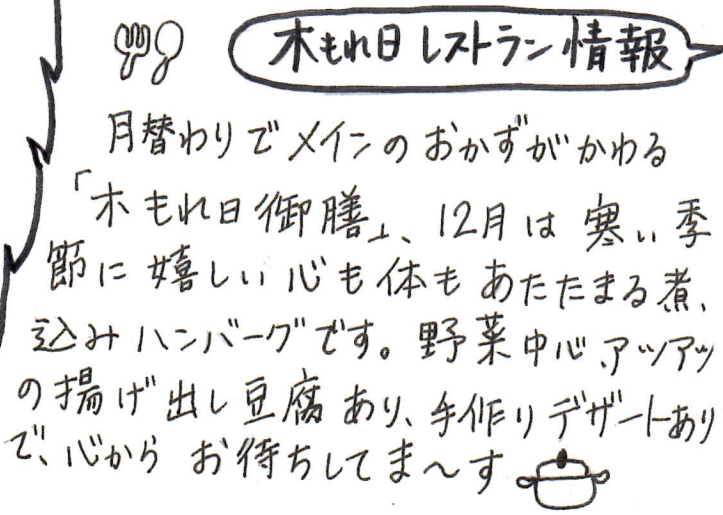 木もれ日レストラン情報
月替わりでメインのおかずがかわる
「木もれ日御膳」、12月は寒い季
節に嬉しい心も体もあたたまる煮
込みハンバーグです。野菜中心、アツアツ
の揚げ出し豆腐あり、手作りデザートあり
で、心からお待ちしてま〜す